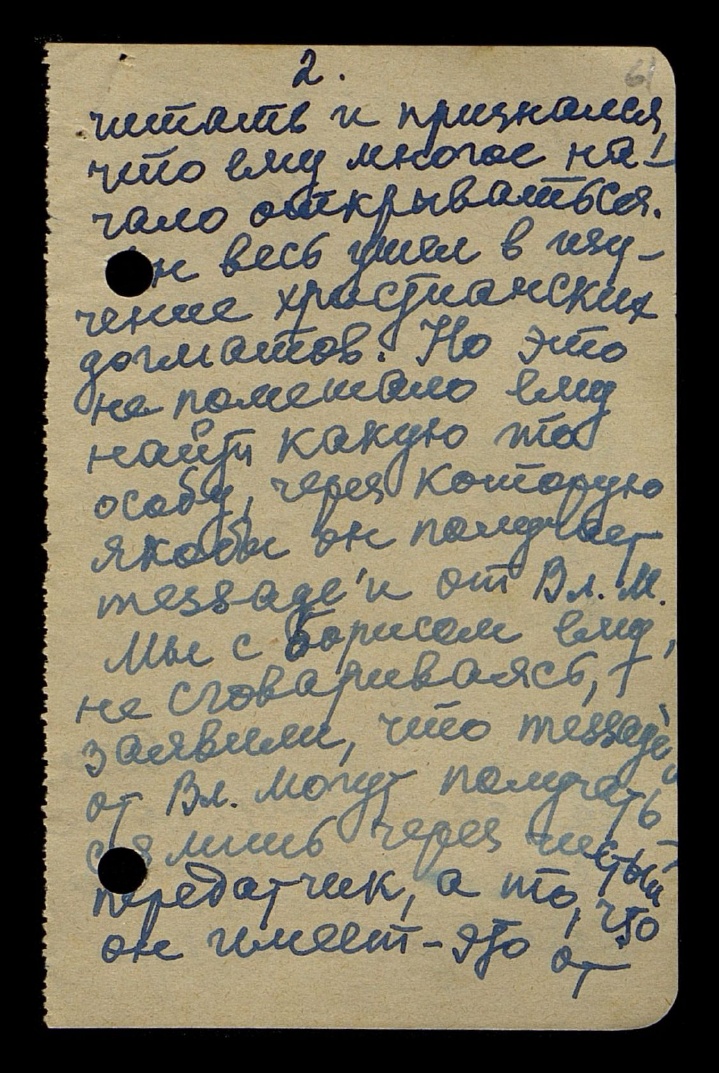 2.
61
читать и признался,
что ему многое на-
чало открываться.
Он весь ушел в изу-
чение христианских
догматов. Но это
не помешало ему
найти какую то
особу, через которую
якобы он получает
message'и от Вл. М.
Мы с Борисом ему,
не сговариваясь,
заявили, что message'и
от Вл. могут получать-
ся лишь через чистый
передатчик, а то, что
он имеет - это от